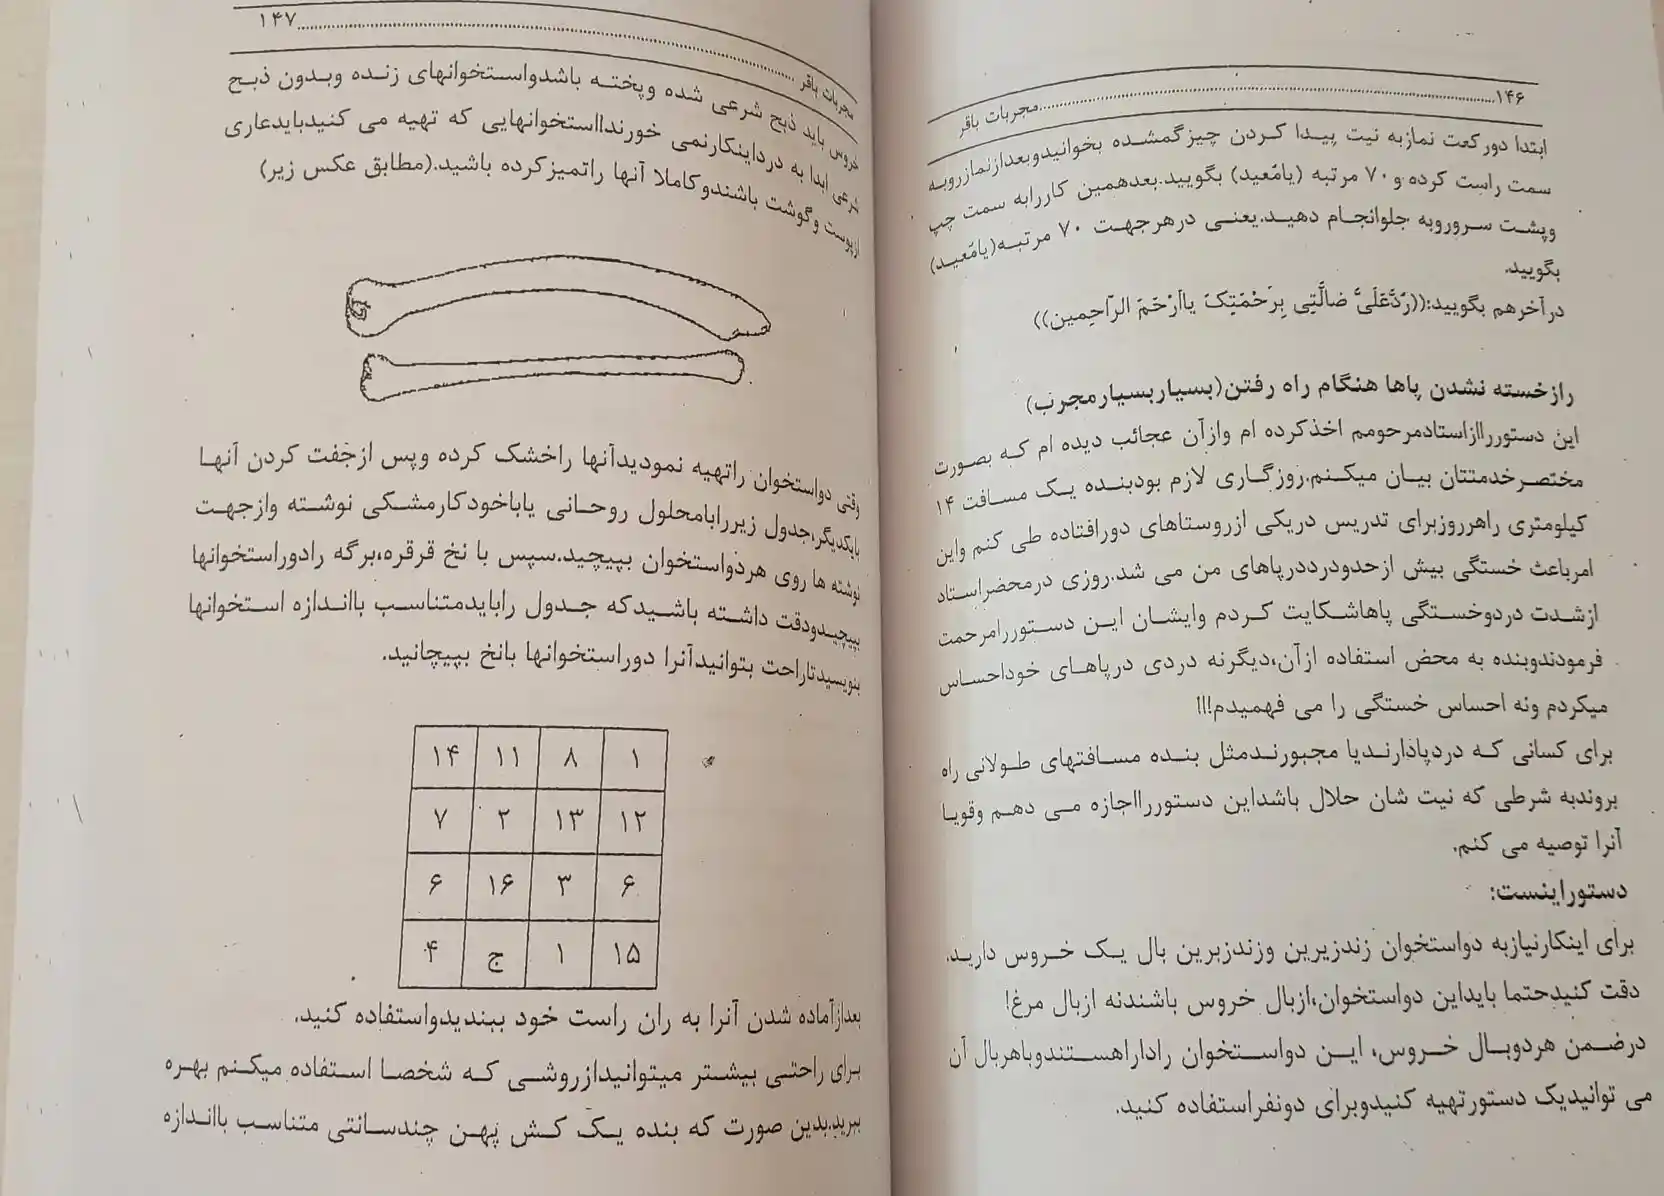 ۱۴۶..........مجربات باقر
ابتدا دورکعت نمازبه نیت پیدا کردن چیزگمشده بخوانیدوبعدازنمازروبه
سمت راست کرده و ۷۰ مرتبه (یامُعید) بگویید.بعدهمین کاررابه سمت چپ
وپشت سروروبه جلوانجام دهید.یعنی درهرجهت ۷۰ مرتبه(یامُعید)
بگویید.
درآخرهم بگویید:((رُدَّعَلَیَّ ضالَّتِی بِرَحْمَتِکَ یاأرْحَمَ الرّاحِمین))
رازخسته نشدن پاها هنگام راه رفتن(بسیاربسیارمجرب)
این دستورراازاستادمرحومم اخذکرده ام وازآن عجائب دیده ام که بصورت
مختصرخدمتتان بیان میکنم.روزگاری لازم بودبنده یک مسافت ۱۴
کیلومتری راهرروزبرای تدریس دریکی ازروستاهای دورافتاده طی کنم واین
امرباعث خستگی بیش ازحدودرددرپاهای من می شد.روزی درمحضراستاد
ازشدت دردوخستگی پاهاشکایت کردم وایشان این دستوررامرحمت
فرمودندوبنده به محض استفاده ازآن،دیگرنه دردی درپاهای خوداحساس
میکردم ونه احساس خستگی را می فهمیدم!!!
برای کسانی که دردپادارندیا مجبورندمثل بنده مسافتهای طولانی راه
بروندبه شرطی که نیت شان حلال باشداین دستوررااجازه می دهم وقویا
آنرا توصیه می کنم.
دستوراینست:
برای اینکارنیازبه دواستخوان زندزیرین وزندزبرین بال یک خروس دارید.
دقت کنیدحتما بایداین دواستخوان،ازبال خروس باشندنه ازبال مرغ!
درضمن هردوبال خروس، این دواستخوان راداراهستندوباهربال آن
می توانیدیک دستورتهیه کنیدوبرای دونفراستفاده کنید.
مجربات باقر..........۱۴۷
خروس باید ذبح شرعی شده وپخته باشدواستخوانهای زنده وبدون ذبح
شرعی ابدا به درداینکارنمی خورند!استخوانهایی که تهیه می کنیدبایدعاری
ازپوست وگوشت باشندوکاملا آنها راتمیزکرده باشید.(مطابق عکس زیر)
وقتی دواستخوان راتهیه نمودیدآنها راخشک کرده وپس ازجفت کردن آنها
بایکدیگر،جدول زیررابامحلول روحانی یاباخودکارمشکی نوشته وازجهت
نوشته ها روی هردواستخوان بپیچید.سپس با نخ قرقره،برگه رادوراستخوانها
بپیچیدودقت داشته باشیدکه جدول رابایدمتناسب بااندازه استخوانها
بنویسیدتاراحت بتوانیدآنرا دوراستخوانها بانخ بپیچانید.
۱ ۸ ۱۱ ۱۴
۱۲ ۱۳ ۲ ۷
۶ ۳ ۱۶ ۶
۱۵ ۱ ج ۴
بعدازآماده شدن آنرا به ران راست خود ببندیدواستفاده کنید.
برای راحتی بیشتر میتوانیدازروشی که شخصا استفاده میکنم بهره
ببرید.بدین صورت که بنده یک کش پهن چندسانتی متناسب بااندازه